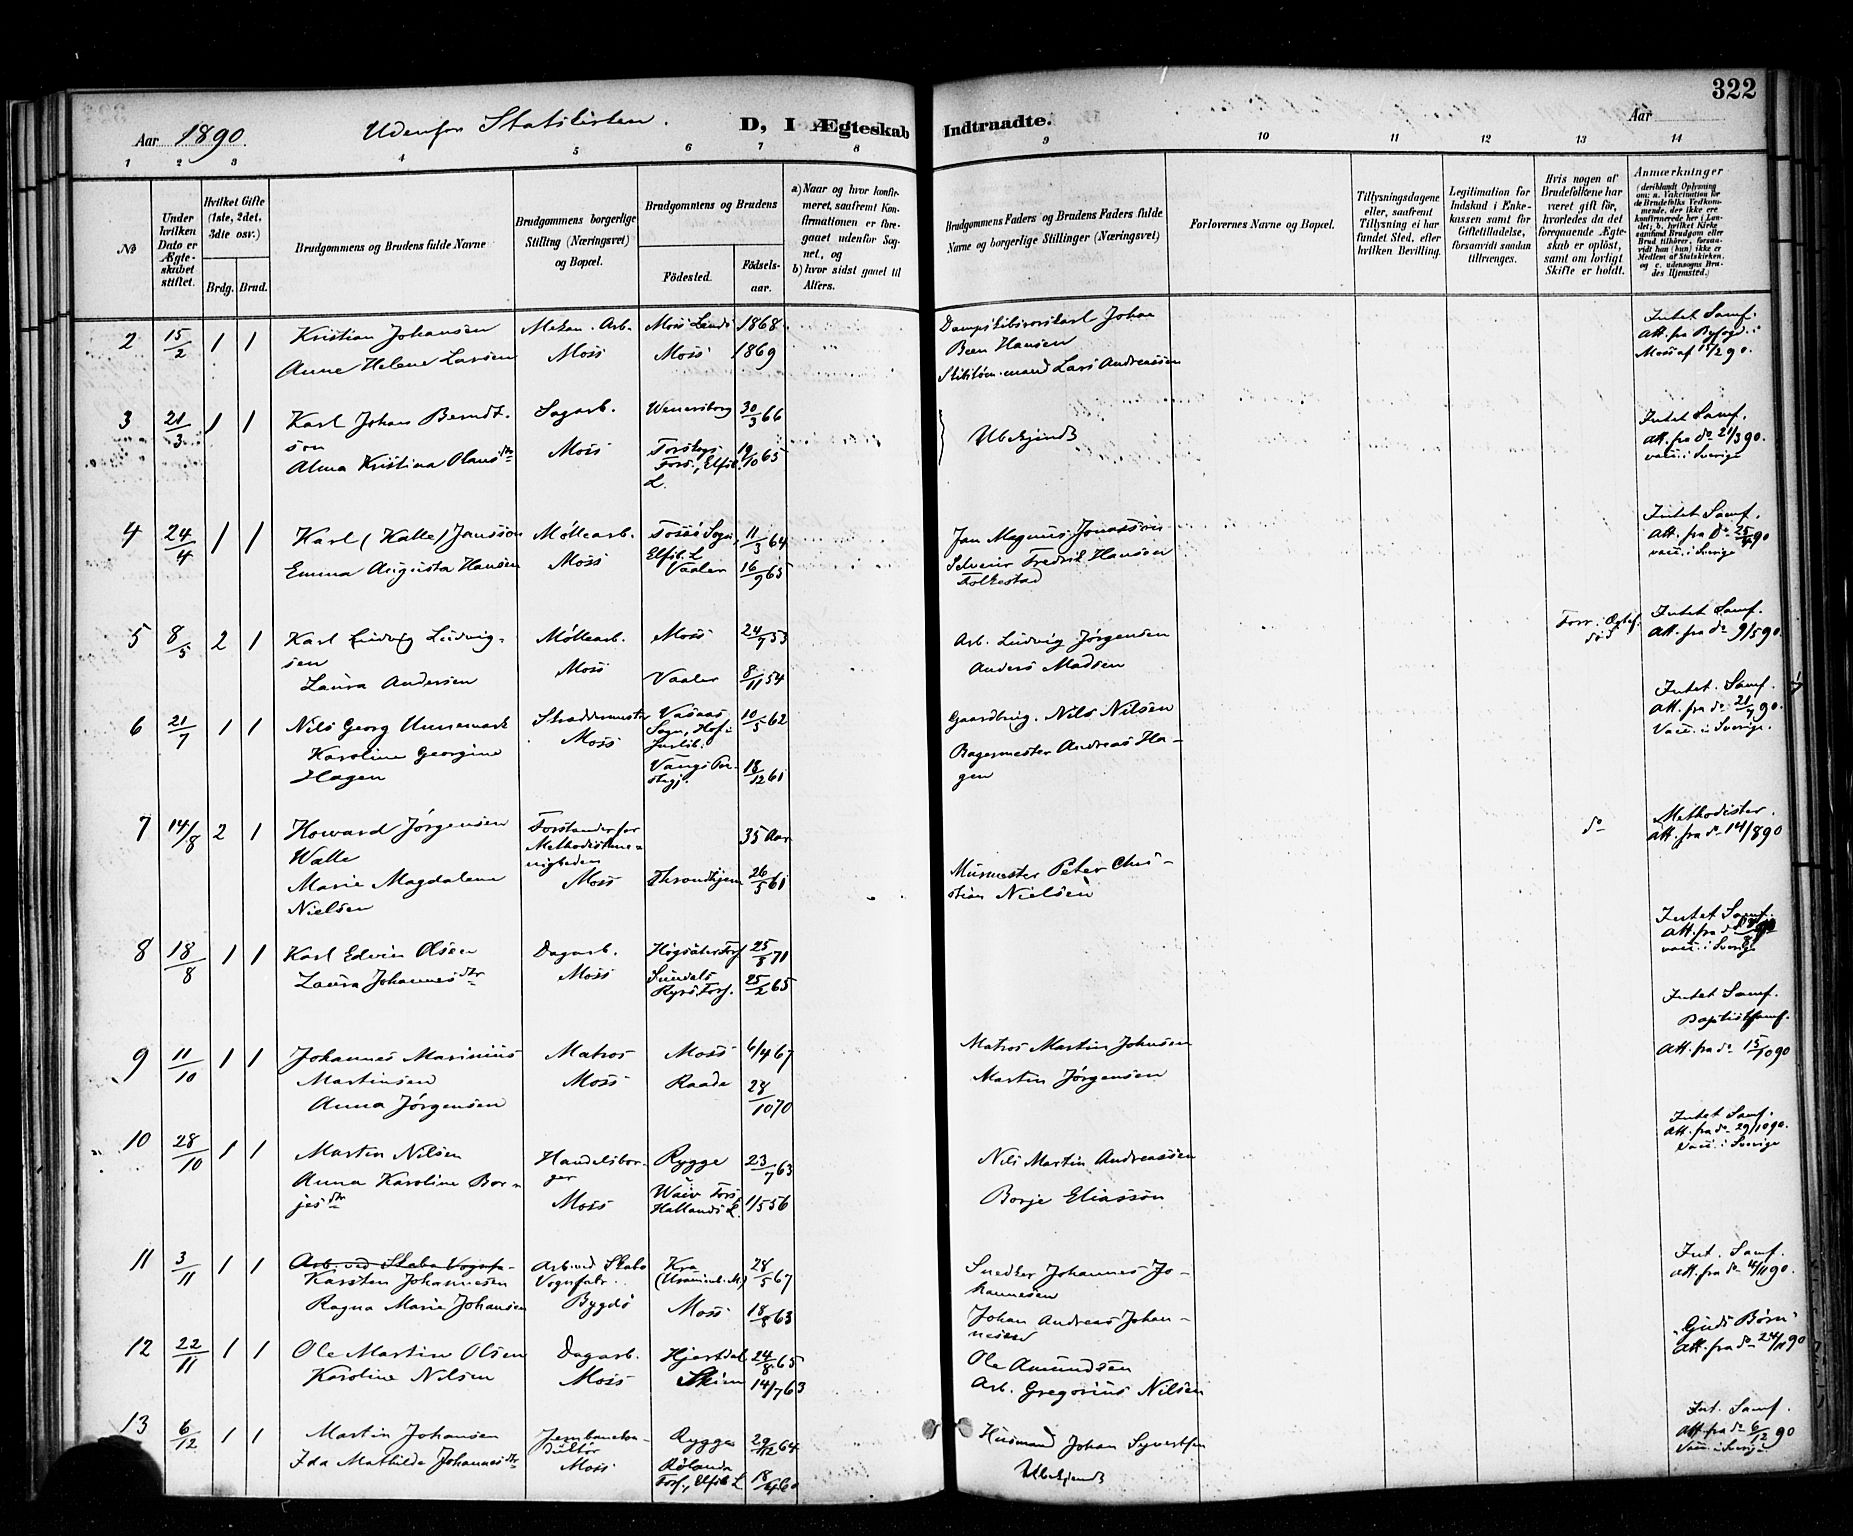 322
Aar 1890.
Udenfor Statskirken.
D, I Ægteskab Indtraadte.
Aar
1 2 3 4 5 6 7 8 9 10 11 12 13 14
No
Under hvilken Dato er Ægteskabet stiftet.
Hvilket Gifte (1ste, 2det, 3die osv.)
Brdg. Brud.
Brudgommens og Brudens fulde Navne
Brudgommens borgerlige Stilling (Næringsvei) og Bopæl.
Brudgommens og Brudens
Födested.
Födsels-aar.
a) Naar og hvor konfirmeret, saafremt Konfirmationen er foregaaet udenfor Sognet, og
b) hvor sidst gaaet til Alters.
Brudgommens Faders og Brudens Faders fulde Navne og borgerlige Stillinger (Næringsvei)
Forlovernes Navne og Bopæl.
Tillysningsdagene eller, saafremt Tillysning ei har fundet Sted, efter hvilken Bevilling.
Legitimation for Indskud i Enkekassen samt for Giftetilladelse, forsaavidt saadan tiltrænges.
Hvis nogen af Brudefolkene har været gift før, hvorledes da det foregaaende Ægteskab er oplöst, samt om lovligt Skifte er holdt.
Anmærkninger
(deriblandt Oplysning om: a. Vakcination for de Brudefolks Vedkommende, der ikke ere konfirmerede her i Landet; b. hvilket Kirkesamfund Brudgom eller Brud tilhører, forsaavidt han (hun) ikke er Medlem af Statskirken, og c. udensogns Brudes Hjemsted.)
2 15/2 1 1 Kristian Johansen Mekan. Arb. Moss Landi 1868
Anne Helene Larsen Moss Moss 1869
Johan
Been Hansen
mand Lars Andreassen
Intet Samf.
Att. fra Byfogd i
Moss af 15/2 90.
3 21/3 1 1 Karl Johan Berndt-
son
Sagarb. Wenersborg 30/3 66
Alma Kristina Olausdtr Moss 19/10 65
Ubekjendt
Intet Samf.
Att. fra do 21/3 90.
vacc. i Sverige
4 24/4 1 1 Karl (Kalle) Jansson Møllearb. Tössö Sogn, 11/3 64
Elfsb. L
Emma Augusta Hansen Moss Vaaler 16/9 65
Jan Magnus Jonasson
Fredrik Hansen
Folkestad
Intet Samf.
Att. fra do 25/4 90
vacc. i Sverige
5 8/5 2 1 Karl Ludvig Ludvig-
sen
Møllearb. Moss 24/7 53
Laura Andersen Moss Vaaler 8/11 54
Arb. Ludvig Jørgensen
Anders Madsen
Forr. Ægtef.
död
Intet Samf.
Att. fra do 9/5 90.
6 21/7 1 1 Nils Georg Unnemark Skræddermester 10/5 62
Moss
Karoline Georgine
Hagen
Vangs Præ-
stegj. 18/12 61
Gaardbrug. Nils Nilsen
Bagermester Andreas Ha-
gen
Intet. Samf.
Att. fra do 21/7 90.
Vacc. i Sverige.
7 14/8 2 1 Howard Jørgensen
Walle
Forstander for
Methodistme-
nigheden
35 Aar
Marie Magdalene
Nielsen
Moss Throndhjem 26/5 61
Murmester Peter Chri-
stian Nielsen
do
Methodister.
Att. fra do 14/8 90
8 18/8 1 1 Karl Edvin Olsen Dagarb. Högsäter Fors. 25/8 71
Laura Johannesdtr Moss Sundals
Ryrs Fors. 25/2 65
Intet Samf.
Att. fra do
vacc. i Sverige
9 11/10 1 1 Johannes Marinius
Martinsen
Matros Moss 6/4 67
Anna Jørgensen Moss Raade 28/10 70
Matros Martin Johnsen
Martin Jørgensen
Intet Samf.
Baptistsamf.
Att. fra do 15/10 90
10 28/10 1 1 Martin Nilsen Handelsbor-
ger
Rygge 23/7 63
Anna Karoline Bor-
jesdtr
Moss
Hallands L. 1/5 56
Nils Martin Andreassen
Borje Eliasson
Intet Samf.
Att. fra do 29/10 90.
Vacc. i Sverige
11 3/11 1 1 Arb. ved Skabo Vognfa-
Karsten Johannesen
Arb. ved Skabo
Vognfabr.
Kra 28/5 67
Ragna Marie Johansen Bygdö Moss 18/8 63
Snedker Johannes Jo-
hannesen
Johan Andreas Johan-
nesen
Int. Samf.
Att. fra do 4/11 90.
12 22/11 1 1 Ole Martin Olsen Dagarb. Hjertdal 24/8 65
Karoline Nilsen Moss Skien 14/7 63
Ole Amundsen
Arb. Gregorius Nilsen
"Guds Børn"
Att. fra do 24/11 90
13 6/12 1 1 Martin Johansen Jernbanekon-
duktör
Rygge 29/12 64
Ida Mathilde Johannesdtr Moss Rölanda
Fors., Elfsb. L 18/4 60
Husmand Johan Syvertsen
Ubekjendt
Int. Samf.
Att. fra do 6/12 90
Vacc. i Sverige